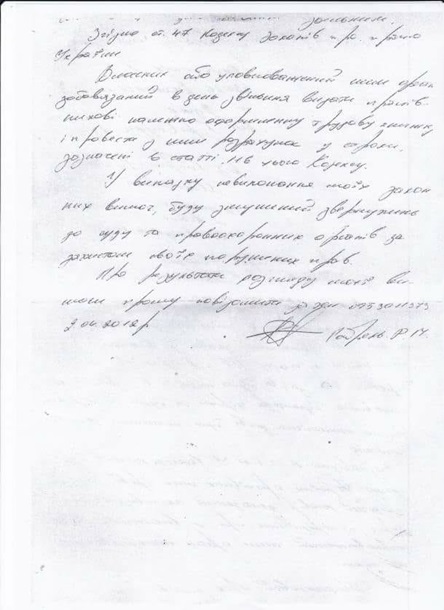 звільнення.
Згідно ст. 47 Кодексу Законів пр. працю
України
Власник або уповноважений ним орган
зобов'язаний в день звільнення видати праців
никові належно оформлену трудову книжку
і провести з ним розрахунок у строки
зазначені в статті 116 цього Кодексу.
У випадку невиконання моїх закон
них вимог, буду змушений звернутись
до суду та правоохоронних органів за
захистом своїх порушених прав.
Про результати розгляду моєї ви
моги прошу повідомити
2.04.2012р Р. М.